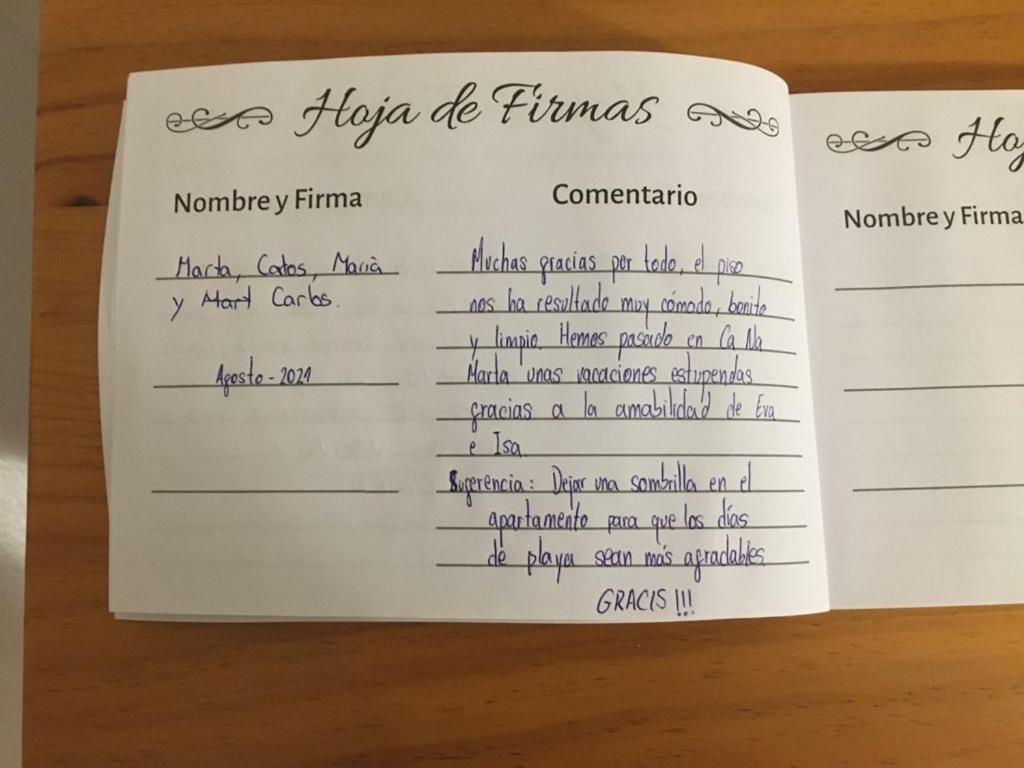 Hoja de Firmas
Nombre y Firma
Comentario
Marta, Carlos, Marià
y Mart Carlos.
Agosto - 2021
Muchas gracias por todo, el piso
nos ha resultado muy cómodo, bonito
y limpio. Hemos pasado en Ca Na
Marta unas vacaciones estupendas
gracias a la amabilidad de Eva
e Isa.
Sugerencia: Dejar una sombrilla en el
apartamento para que los días
de playa sean más agradables.
GRACIS!!!
Nombre y Firma